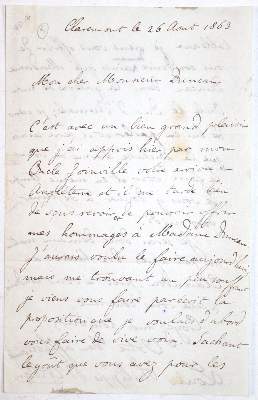 Claremont le 26 Aout 1863
Mon cher Monsieur Duncan
C'est avec un bien grand plaisir
que j'ai appris hier par mon
Oncle Joinville votre arrivée en
Angleterre et il me tarde bien
de vous revoir et pouvoir offrir
mes hommages à Madame Duncan
J'aurais voulu le faire aujourd'hui
mais me trouvant un peu souffrant
je viens vous faire par écrit la
proposition que je voulais d'abord
vous faire de vive voix. Sachant
le goût que vous avez pour les